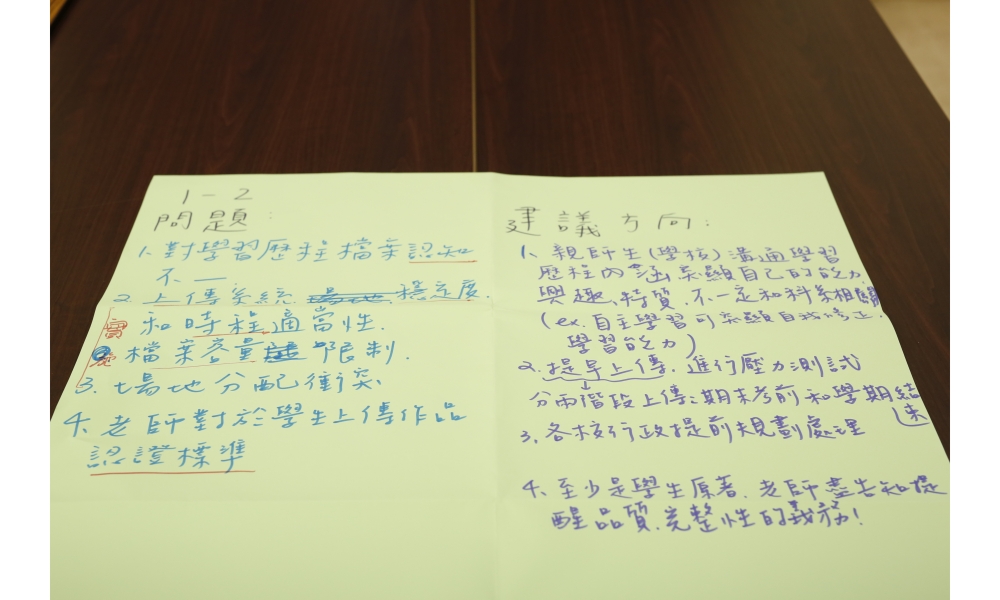 1-2
問題:
1.對學習歷程檔案認知
不一.
2.上傳系統 穩定度.
和時程適當性.
檔案容量 限制.
3.場地分配衝突
4.老師對於學生上傳作品
認證標準
建議方向:
1.親師生(學校)溝通學習
歷程內涵系顯自己的能力.
興趣、特質.不一定和科系相關
(ex.自主學習可系顯自我修正.
學習能力)
2.提早上傳.進行壓力測試
分兩階段上傳:期末考前和學期結
束
3.各校行政提前規劃處理
4.至少是學生原著.老師盡告知提
醒品質.完整性的義務!